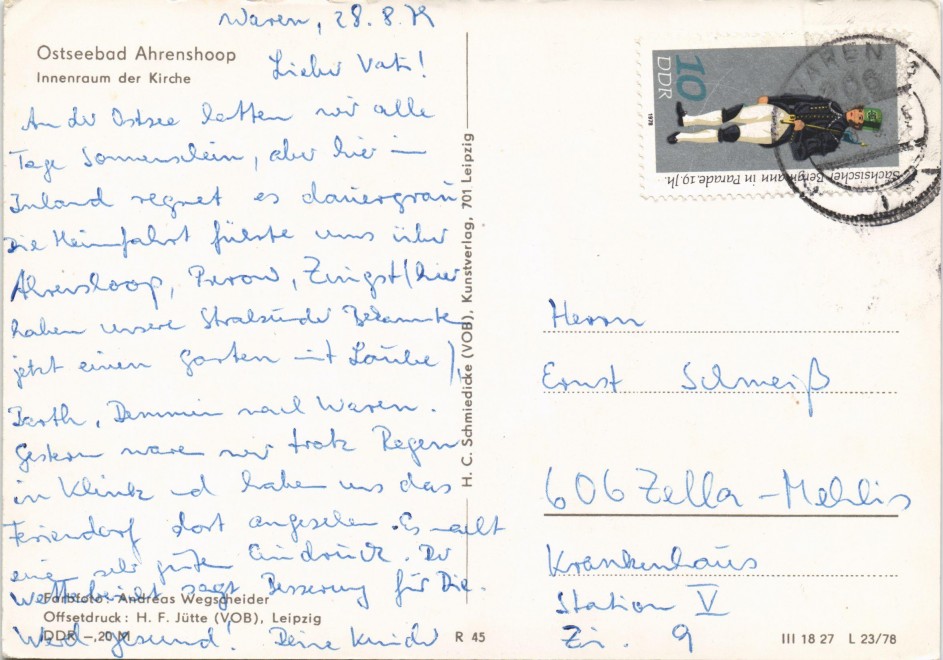 Ostseebad Ahrenshoop
Innenraum der Kirche
Waren, 28.8.79
Lieber Vati!
An der Ostsee hatten wir alle
Tage Sonnenschein, aber hier im
Inland regnet es dauergrau
Die Heimfahrt führte uns über
Ahrenshoop, Prerow, Zingst (hier
haben unsere Stralsunder Bekannten
jetzt einen Garten mit Laube),
Barth, Demmin nach Waren.
Gestern waren wir trotz Regen
in Klink und haben uns das
Feriendorf dort angesehen. Es macht
einen sehr guten Eindruck. Der
Wetterbericht sagt Besserung für Die.
Werd gesund! Deine Kinder
Farbfoto: Andreas Wegscheider
Offsetdruck: H. F. Jütte (VOB), Leipzig
DDR –,20 M
R 45
H. C. Schmiedicke (VOB), Kunstverlag, 701 Leipzig
10
DDR
1978
Sächsischer Bergmann in Parade. 19. Jh.
WAREN
206
Herrn
Ernst Schmeiß
606 Zella-Mehlis
Krankenhaus
Station V
Zi. 9
III 18 27 L 23/78